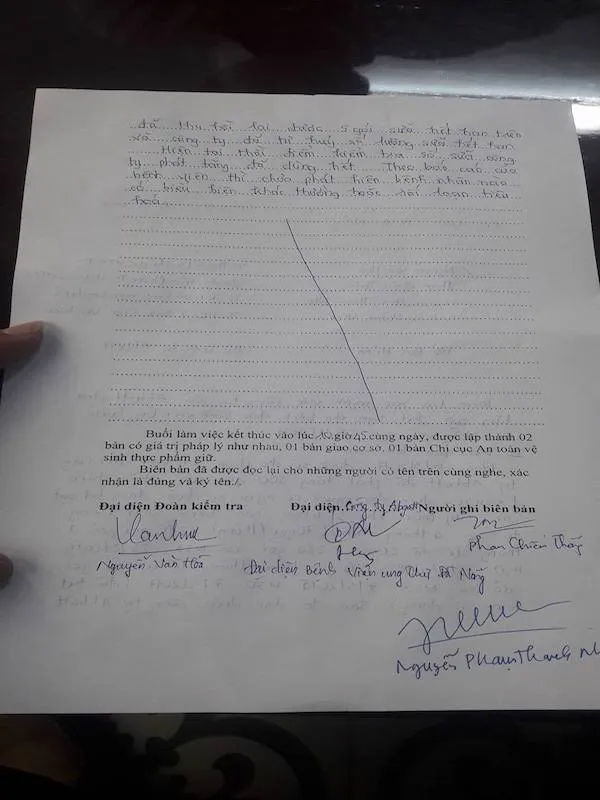 đã thu hồi lại được 5 gói sữa hết hạn trên
và công ty đã tự hủy số lượng sữa hết hạn
Hiện tại thời điểm kiểm tra số sữa công
ty phát tặng đã dùng hết. Theo báo cáo của
bệnh viện thì chưa phát hiện bệnh nhân nào
có biểu hiện khác thường hoặc rối loạn tiêu
hoá.
Buổi làm việc kết thúc vào lúc 10 giờ 45 cùng ngày, được lập thành 02
bản có giá trị pháp lý như nhau, 01 bản giao cơ sở, 01 bản Chi cục An toàn vệ
sinh thực phẩm giữ.
Biên bản đã được đọc lại cho những người có tên trên cùng nghe, xác
nhận là đúng và ký tên./.
Đại diện Đoàn kiểm tra Đại diện Công ty Abbott Người ghi biên bản
Nguyễn Văn Hòa Phan Chiến Thắng
Đại diện Bệnh viện ung thư Đà Nẵng
Nguyễn Phạm Thanh